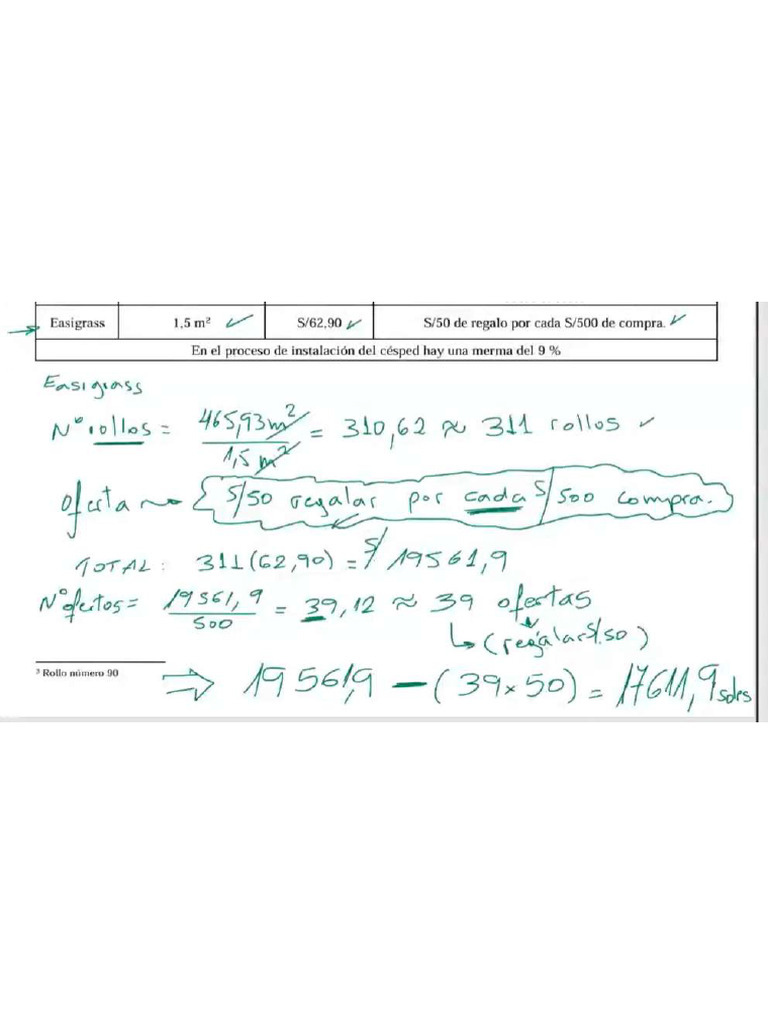 Easigrass 1,5 m² ✓ S/62,90 ✓ S/50 de regalo por cada S/500 de compra. ✓
En el proceso de instalación del césped hay una merma del 9 %
Easigrass
N° rollos = 465,93 m² / 1,5 m² = 310,62 ≈ 311 rollos ✓
oferta → S/50 regalar por cada S/500 compra.
TOTAL: 311(62,90) = S/ 19561,9
N° ofertas = 19561,9 / 500 = 39,12 ≈ 39 ofertas
↳ (regalar S/.50)
³ Rollo número 90
⇒ 19561,9 − (39 × 50) = 17611,9 soles